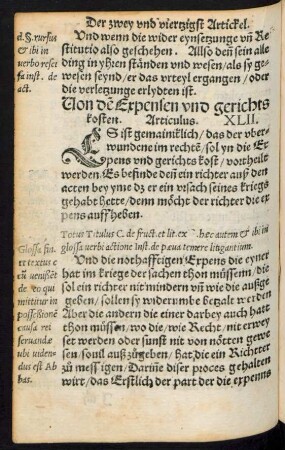 Der zwey vnd viertzigst Artickel.
d. §. rursus
& ibi in
verbo resti
fa inst. de
act.
Vnd wenn die wider eynsetzunge vñ Re
stitutio also geschehen. Allso deñ sein alle
ding in yhzen ständen vnd wesen/ als sy ge
wesen seynd/ er das vrteyl ergangen/ oder
die verletzunge erlydten ist.
Von dē Expensen vnd gerichts
kosten. Articulus. XLII.
ES ist gemainiklich/ das der vber
wundene im rechtē/ sol yn die Ex
pens vnd gerichts kost/ vortheilt
werden. Es befinde deñ ein richter auß den
acten bey yme dz er ein vrsach seines kriegs
gehabt hette/ denn möcht der richter die ex
pens auffheben.
Totus Titulus C. de fruct. et lit. ex hæc autem & ibi in
glossa verbi actione inst. de pœna temere litigantium.
Vnd die nothafftigen Expens die eyner
hat im kriege der sachen thon müssenn/ die
sol ein richter nit mindern vñ wie die außge
geben/ sollen sy widerumbe betzalt werden
Aber die andern die einer darbey auch hatt
thon müssen/ wo die/ wie Recht/ nit erwey
set werden oder sunst nit von nötten gewe
sen/ sonst außzügeben/ hat die ein Richter
zu messigen/ Dariñe diser proces gehalten
wirt/ das Erstlich der part der die expenns
Glossa fin
er textus e
cū venisset
de eo qui
mittitur in
possessionē
causa rei
seruandæ
vbi viden
dus est Ab
bas.